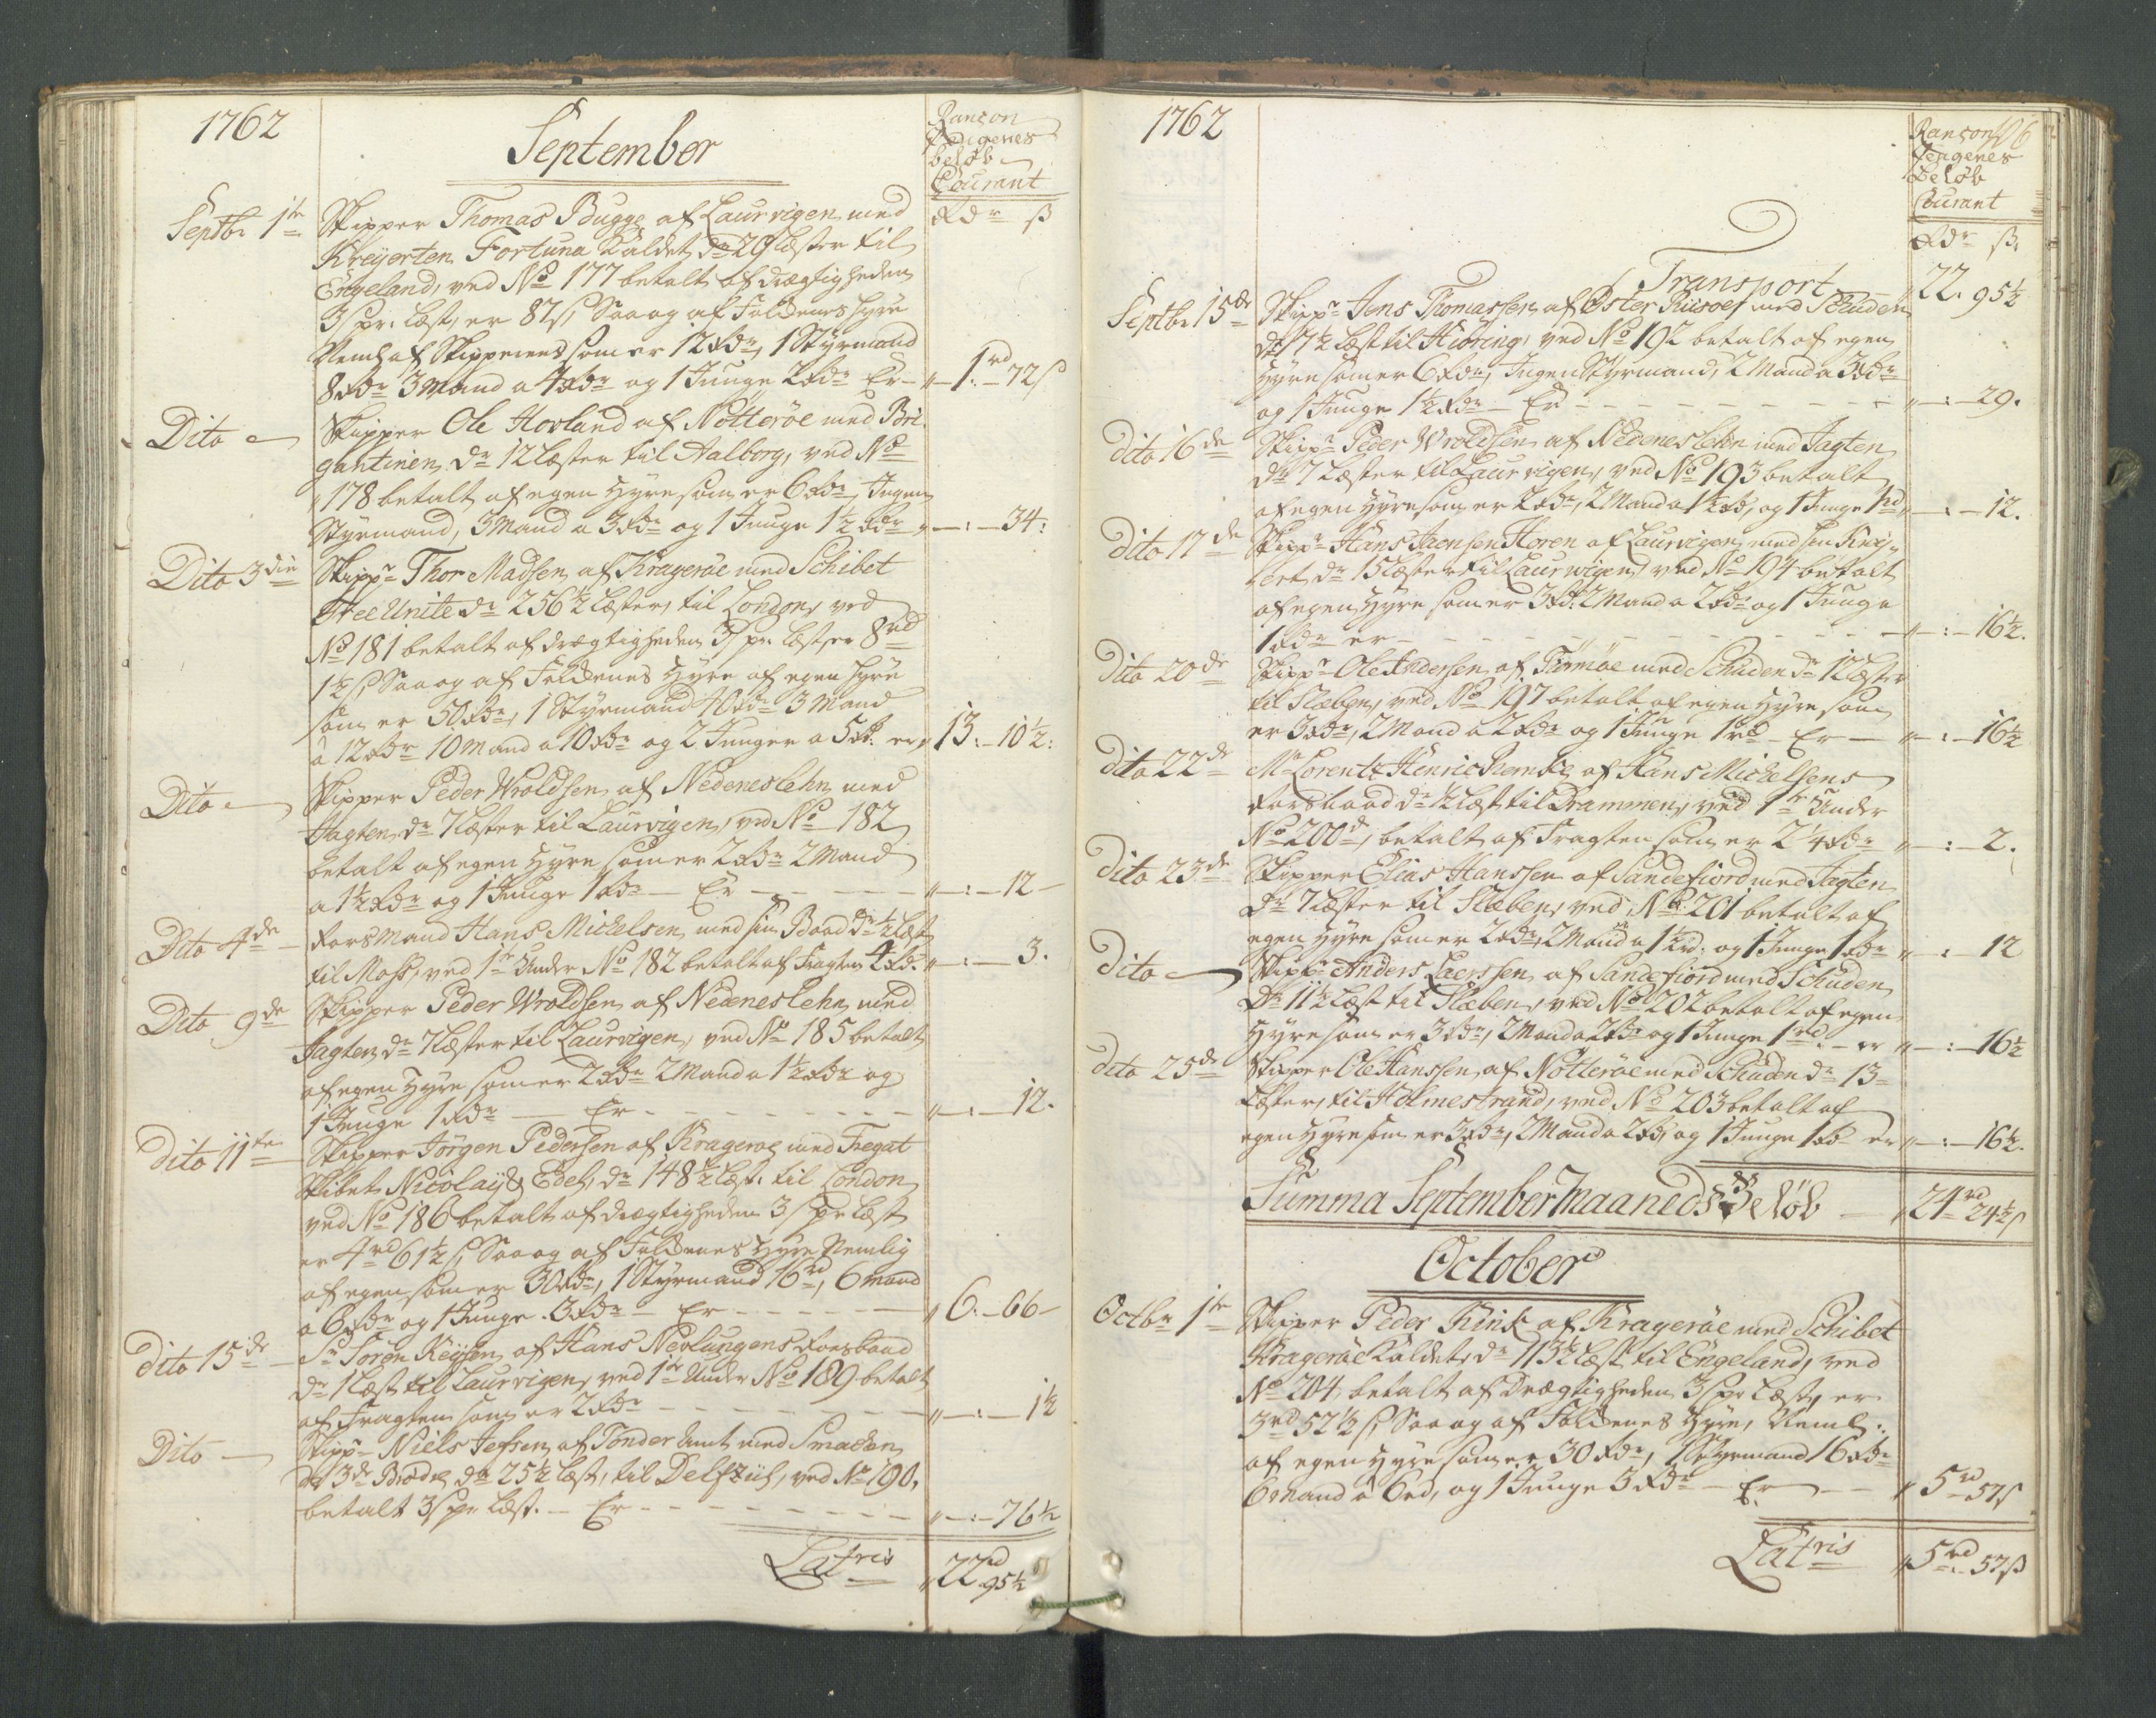 1762
September
Rançon
Pengenes
beløb
Courant
Septbr 1te Skipper Thomas Bugge af Laurvigen med
Rdr ß
Kreyerten Fortuna kaldet dr 29 Læster til
Engeland, ved No 177 betalt af drægtigheden
3 ß pr. Læst, er 87 ß, Saa og af Foldenes hyre
Neml. af Skipperens som er 12 Rdr, 1 Styrmand
8 Rdr 3 Mand a 4 Rdr og 1 Junge 2 Rdr Er - " 1rd 72 ß
Dito Skipper Ole Hovland af Nötteröe med Bri-
gantinen dr 12 Læster til Aalborg, ved No
178 betalt af egen Hyre som er 6 Rdr, Ingen
Styrmand, 3 Mand a 3 Rdr og 1 Junge 1½ Rdr " - : - 34:
Dito 3die Skippr Thor Madsen af Krageröe med Schibet
Unite dr 256½ Læster, til London, ved
No 181 betalt af drægtigheden 3 ß pr. Læst er 8rd
1½ ß Saa og af Foldenes Hyre af egen Hyre
som er 50 Rdr, 1 Styrmand 40 Rdr 3 Mand
à 12 Rdr 10 Mand a 10 Rdr og 2 Junger a 5 Rd. er " 13: - 10½:
Dito Skipper Peder Wroldsen af Nedeneslehn med
Jagten dr 7 Læster til Laurvigen, ved No 182
betalt af egen Hyre som er 2 Rdr 2 Mand
a 1½ Rdr og 1 Junge 1 Rdr - Er - - - " - : - 12 -
Dito 4de Forsmand Hans Mickelsen med sin Baad dr ½ Læst
til Moss, ved 1te Under No 182 betalt af Fragten 4 Rdr. " - : - 3.
Dito 9de Skipper Peder Wroldsen af Nedeneslehn med
Jagten dr 7 Læster til Laurvigen, ved No 185 betalt
af egen Hyre som er 2 Rdr 2 Mand a 1½ Rdr og
1 Junge 1 Rdr - Er - - - " - : - 12.
Dito 11te Skipper Jörgen Pedersen af Krageröe med Fregat
Skibet Nicolay & Edel, dr 148½ Læst. til London
ved No 186 betalt af drægtigheden 3 ß pr Læst
er 4rd 61½ ß, Saa og af Foldenes Hyre Nemlig
af egen som er 30 Rdr, 1 Styrmand 16rd, 6 mand
a 6 Rdr og 1 Junge 3 Rdr - Er - - - " 6: - 66 -
Dito 15de Sr Sören Reysen af Hans Nevlungens Forsbaad
dr 1 Læst til Laurvigen ved 1te Under No 189 betalt
af Fragten som er 2 Rdr - - - " - : - 1½
Dito Skippr Niels Jessen af Tønder Amt med Smacken
de 3de Brødre dr 25½ Læst, til Delfziil, ved No 190,
betalt 3 ß pr Læst. - Er - - - " - : - 76½
Latris " 22rd 95½
1762
106
Rançon
Pengenes
Beløb
Courant
Rdr ß.
Transport - " 22. 95½
Septbr 15de Skippr Jens Thomassen af Öster Riisoer med Schuden
dr 17½ Læst til Hiöring, ved No 192 betalt af egen
Hyre som er 6 Rdr, Ingen Styrmand, 2 Mand a 3 Rdr
og 1 Junge 1½ Rdr - Er - - - " - : - 29.
Dito 16de Skippr Peder Wroldsen af Nedeneslehn med Jagten
dr 7 Læster til Laurvigen, ved No 193 betalt
af egen Hyre som er 2 Rdr, 2 Mand a 1½ Rd, og 1 Junge 1rd " - : - 12.
Dito 17de Skippr Hans Jensen Floren af Laurvigen med sin Krey-
ert dr 15 Læster til Laurwigen ved No 194 betalt
af egen Hyre som er 3 Rd. 2 Mand a 2 Rdr og 1 Junge
1 Rdr er - - - " - : - 16½.
Dito 20de Skippr Ole Andersen af Tiömöe med Schuden dr 12 Læster
til Sleben, ved No 197 betalt af egen Hyre som
er 3 Rdr, 2 Mand a 2 Rdr og 1 Junge 1rd - Er - " - : - 16½
Dito 22de Mr Lorentz Henric Remke af Hans Mickelsens
Forsbaad dr ½ Læst til Drammen, ved 1te Under
No 200de, betalt af Fragten som er 2¼ Rdr " - : - 2.
Dito 23de Skipper Elias Hanssen af Sandefiord med Jagten
Dr 7 Læster til Sleben, ved No. 201 betalt af
egen Hyre som er 2 Rdr, 2 Mand a 1½rd. og 1 Junge 1 Rdr " - : - 12
Dito Skippr Anders Larssen af Sandefiord med Schuden
Dr 11½ Læst til Sleben, ved No 202 betalt af egen
Hyre som er 3 Rdr, 2 Mand a 2 Rdr og 1 Junge 1rd. - er " - : - 16½
Dito 25de Skipper Ole Hanssen af Nötteröe med Schuden dr 13
Læster, til Holmestrand, ved No 203 betalt af
egen Hyre som er 3 Rdr, 2 Mand a 2 Rd, og 1 Junge 1 Rd er " - : - 16½.
Summa September Maaneds Beløb - " 24rd 24½ ß
October
Octbr 1te Skipper Peder Rink af Krageröe med Schibet
Krageröe Kaldet, dr 113½ Læst til Engeland, ved
No 204 betalt af Drægtigheden 3 ß pr Læst, er
3rd 52½ ß, Saa og af Foldenes Hyre, Neml:
af egen Hyre som er 30 Rdr, 1 Styrmand 16 Rdr
6 mand à 6rd, og 1 Junge 3 Rdr - Er - - " 5rd 57 ß
Latris " 5rd 57 ß